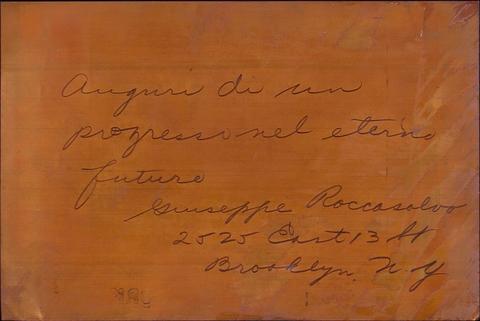 Auguri di un
progresso nel eterno
futuro
Giuseppe Roccasalvo
2525 East 13 St
Brooklyn. N Y